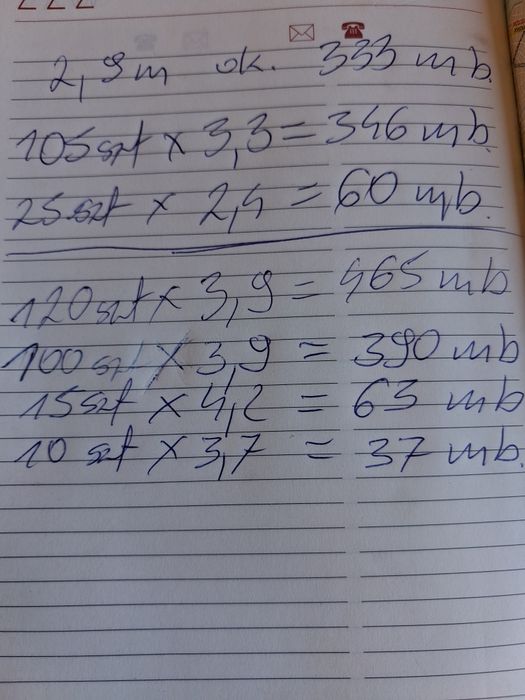 2,9m ok. 333 mb.
105szt x 3,3 = 346 mb.
25szt x 2,4 = 60 mb.
120szt x 3,9 = 465 mb
100szt x 3,9 = 390 mb
15szt x 4,2 = 63 mb
10 szt x 3,7 = 37 mb.